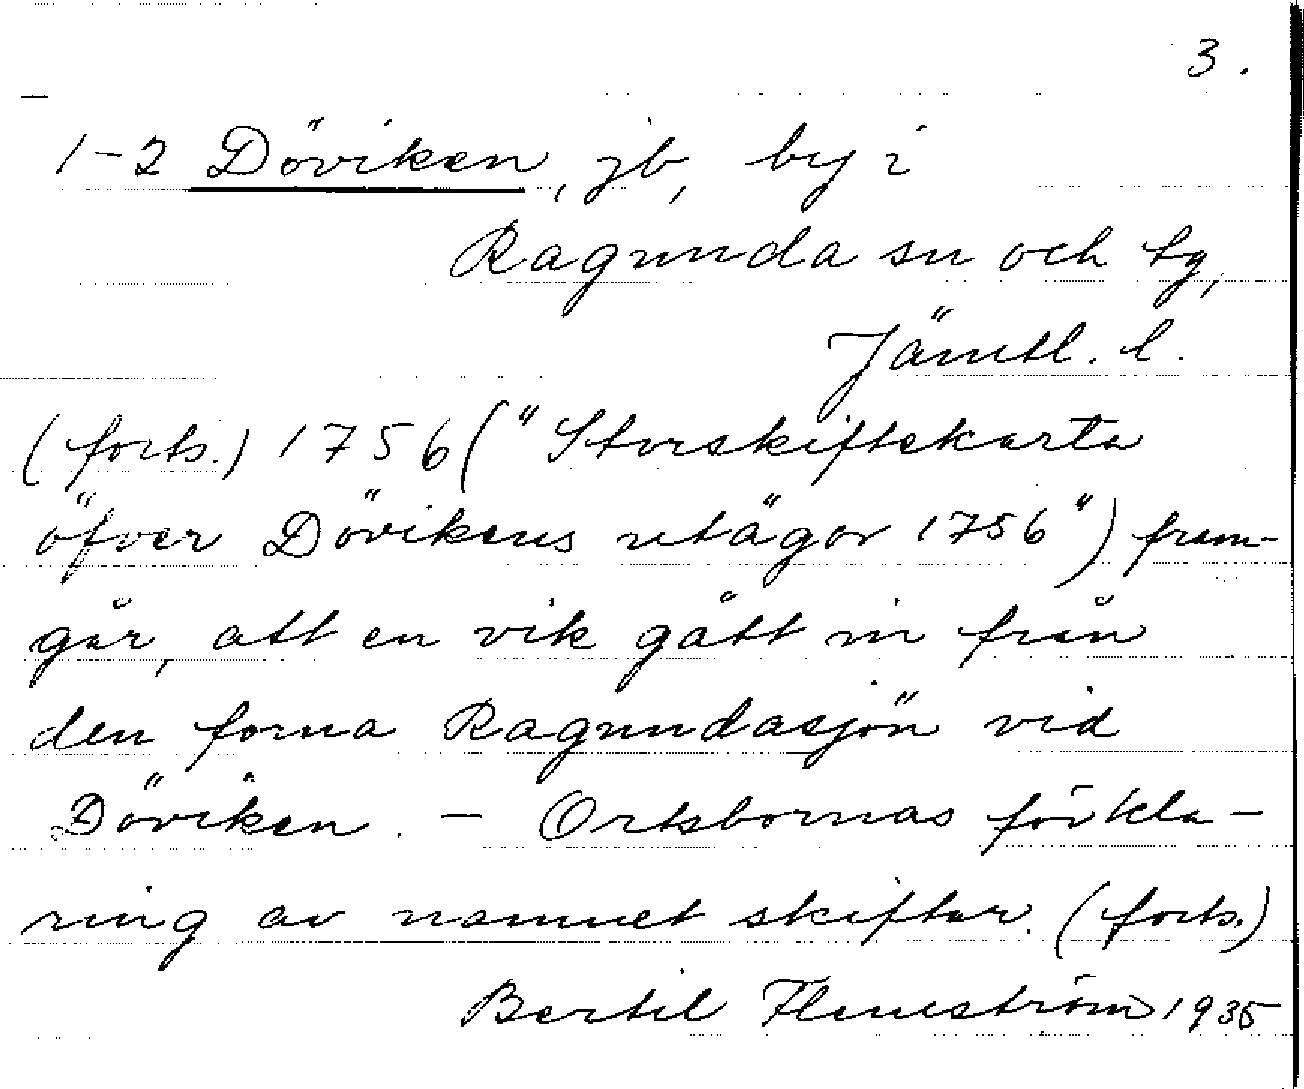 3.
1-2 Döviken, jb, by i
Ragunda sn och tg,
Jämtl. l.
(forts.) 1756 ("Storskiftskarta
öfver Dövikens utägor 1756") fram-
går, att en vik gått in från
den forna Ragundasjön vid
Döviken. - Ortsbornas förkla-
ring av namnet skiftar. (forts.)
Bertil Flemström 1935